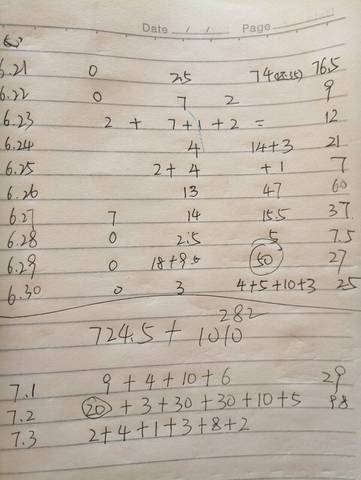 Date / / Page
6.21 0 2.5 74 76.5
6.22 0 7 2 9
6.23 2 + 7+1 +2 = 12
6.24 4 14+3 21
6.25 2+4 +1 7
6.26 13 47 60
6.27 7 14 15.5 37
6.28 0 2.5 5 7.5
6.29 0 18+9.5 50 27
6.30 0 3 4+5+10+3 25
282
724.5 + 1010
7.1 9+4+10+6 29
7.2 20 +3+30+30+10+5 98
7.3 2+4+1+3+8+2